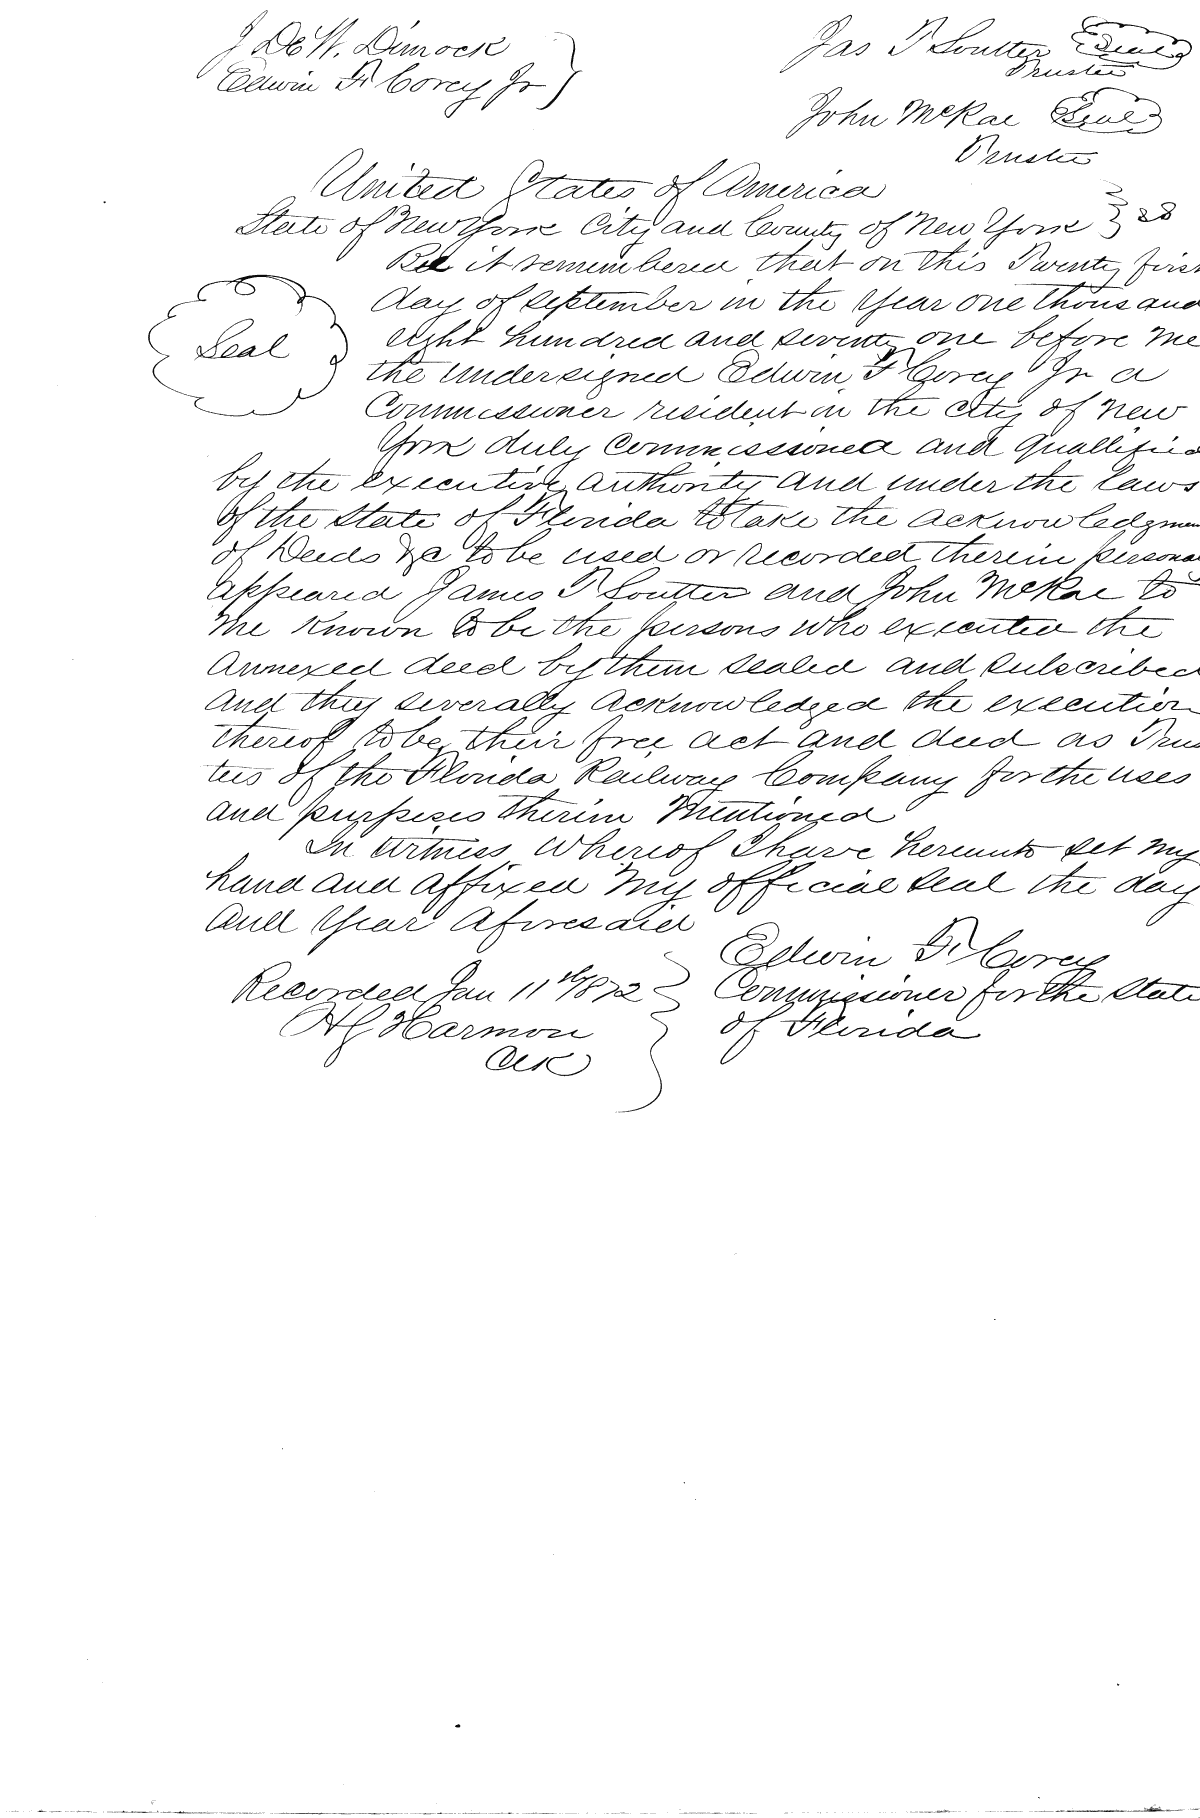 J De W. Dimock
Edwin F. Corey Jr
Jas T Soutter Seal
Trustee
John McRae Seal
Trustee
United States of America
State of New York City and County of New York } ss
Be it remembered that on this Twenty first
Seal
day of september in the Year one thousand
eight hundred and seventy one before me
the undersigned Edwin F Corey Jr a
Commissioner resident in the City of New
York duly Commissioned and Quallified
by the executive authority and under the laws
of the State of Florida to take the acknowledgmen
of Deeds &c to be used or recorded therein persona
appeared James T Soutter and John McRae to
me Known to be the persons who executed the
annexed deed by them sealed and subscribed
and they severally acknowledged the execution
thereof to be their free act and deed as Trus
tees of the Florida Railway Company for the uses
and purposes therein Mentioned
In Witness Whereof I have hereunto set my
hand and affixed My official seal the day
and Year aforesaid
Edwin F. Corey
Commissioner for the State
of Florida
Recorded Jan 11th 1872
Harmon
Clk